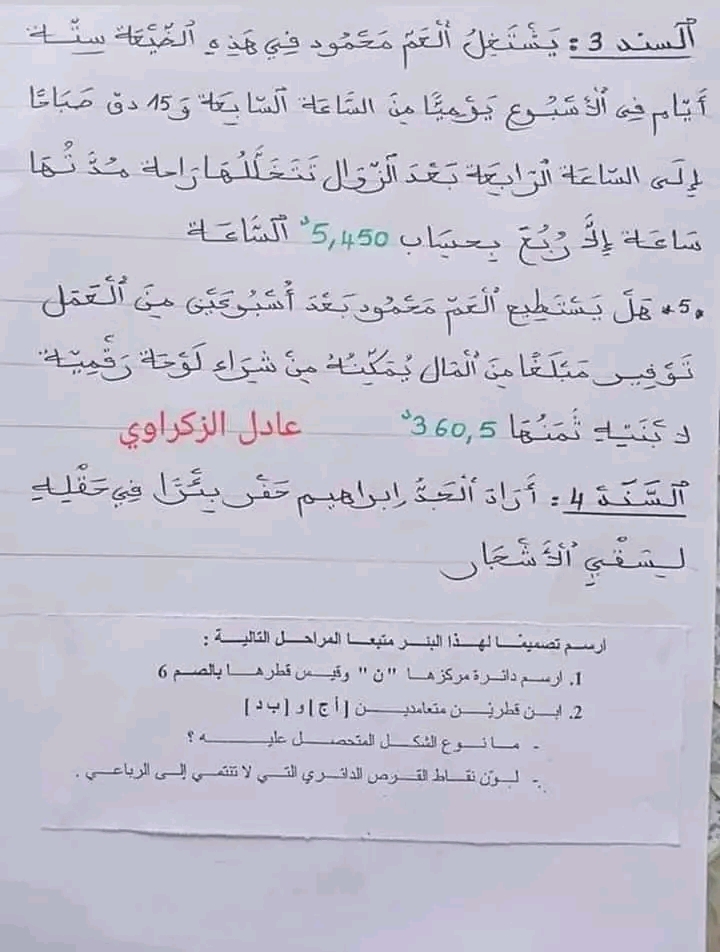 اَلسند 3 : يَشْتَغِلُ اَلْعَمّ مَحْمُود فِي هَذِهِ الضَّيْعَة سِتَّة
أَيَّام فِي اَلْأُسْبُوع يَوْمِيًّا مِنَ السَّاعَة السَّابِعَة وَ 15 دق صَبَاحًا
إِلَى السَّاعَة الرَابِعَة بَعْدَ الزَّوَال تَتَخَلَّلُهَا رَاحة مُدَّتُهَا
سَاعَة إِلاَّ رُبُعَ بِحِسَاب 5,450د اَلسَّاعَة
5• هَلْ يَسْتَطِيع اَلْعَمّ مَحْمُود بَعْدَ أُسْبُوعَيْن مِنَ الْعَمَل
تَوْفِير مَبْلَغًا مِنَ الْمَال يُمَكِّنُهُ مِنْ شِرَاء لَوْحَة رَقْمِيَّة
لاِبْنَتِهِ ثَمَنُهَا 360,5د عادل الزكراوي
اَلسَّنَدْ 4 : أَرَادَ اَلْجَدُّ إبراهيم حَفْر بِئْرًا فِي حَقْلِهِ
لِسَقْيِ اَلْأَشْجَار
ارسم تصميمـا لهـذا البئـر متبعـا المراحـل التاليـة :
1. ارسـم دائـرة مركزهـا "ن" وقيـس قطرهـا بالصـم 6
2. ابـن قطريـن متعامديـن [أ ج] و [ب د]
- مـا نـوع الشكـل المتحصـل عليـه ؟
- لـوّن نقـاط القـرص الدائـري التـي لا تنتمـي إلـى الرباعـي .